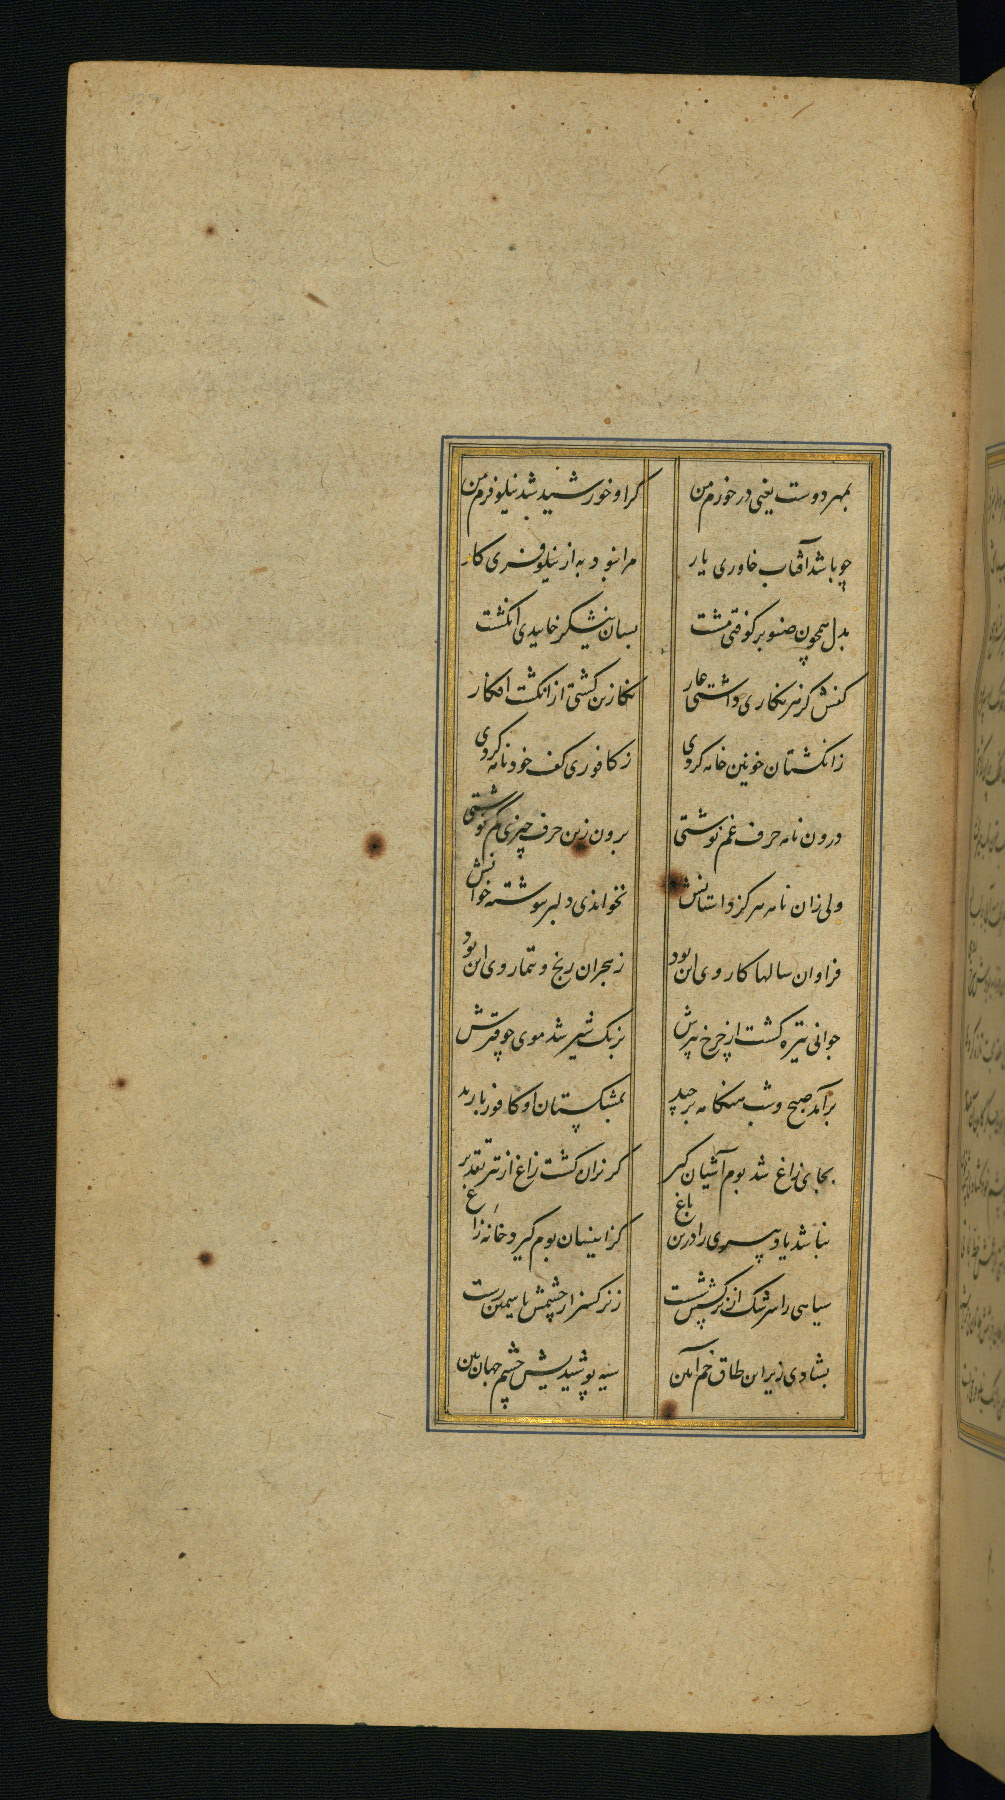 بمهر دوست یعنی در خورم من کراو خورشید شد نیلوفرم من
چو باشد آفتاب خاوری یار مرا نبود به از نیلوفری کار
بدل همچون صنوبر کوفتی مشت بسان نیشکر خاییدی انکشت
کفش کز هر نکاری داشتی عار نکارین کشتی از انکشت افکار
ز انکشتان خونین خامه کردی ز کافوری کف خود نامه کردی
درون نامه حرف غم نوشتی برون زین حرف چیزی کم نوشتی
ولی زان نامه هرکز داستانش نخواندی دلبر نوشته خوانش
فراوان سالها کار وی این بود ز هجران رنج و تیمار وی این بود
جوانی تیره کشت از چرخ پیرش برنک شیر شد موی چو قیرش
برآمد صبح و شب هنکامه برچید بمشکستان او کافور بارید
بجای زاغ شد بوم آشیان کیر کریزان کشت زاغ از تیر تقدیر
نباشد یاد پیری را درین باغ کزاینسان بوم کیرد خانه زاغ
سیاهی را سرشک از نرکسش شست ز نرکس زار چشمش یاسمین رست
بشادی زیر این طاق خم آیین سیه پوشید پیش چشم جهان بین